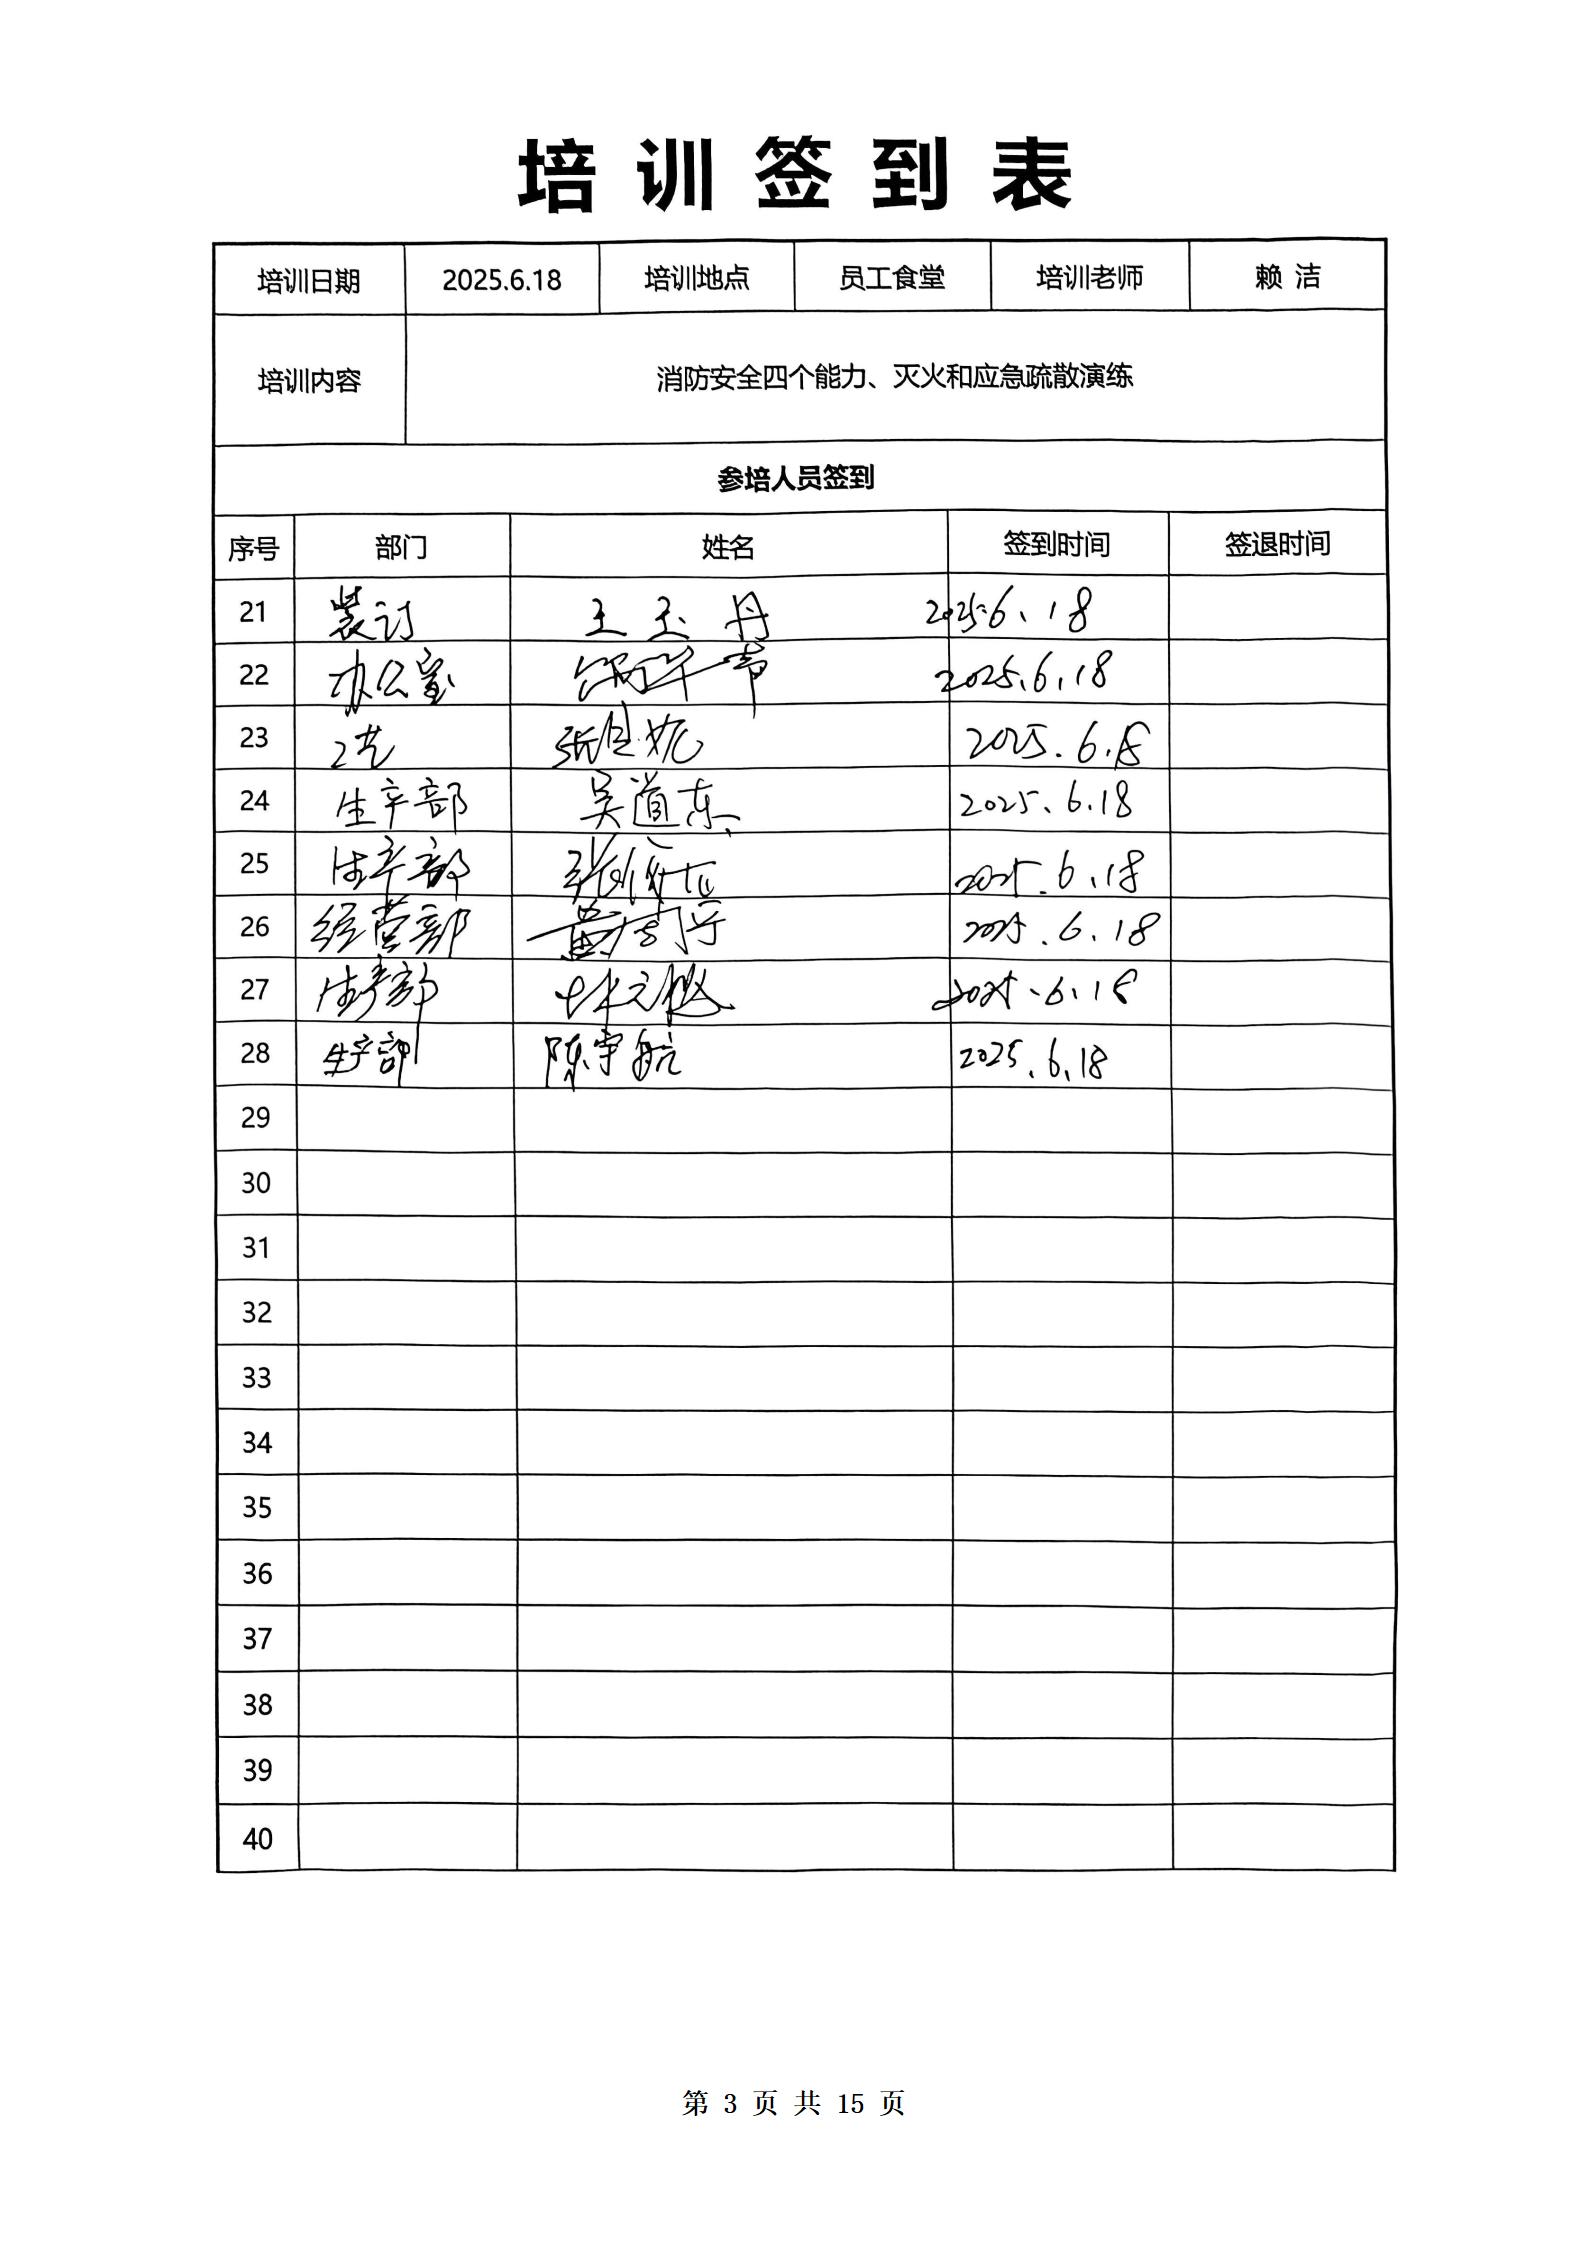 培训签到表
培训日期 2025.6.18 培训地点 员工食堂 培训老师 赖 洁
培训内容 消防安全四个能力、灭火和应急疏散演练
参培人员签到
序号 部门 姓名 签到时间 签退时间
21 装订 王玉丹 2025.6.18
22 办公室 2025.6.18
23 工艺 2025.6.18
24 生产部 吴道东 2025.6.18
25 生产部 2025.6.18
26 经营部 2025.6.18
27 生产部 2025.6.18
28 生产部 陈宇航 2025.6.18
29
30
31
32
33
34
35
36
37
38
39
40
第 3 页 共 15 页